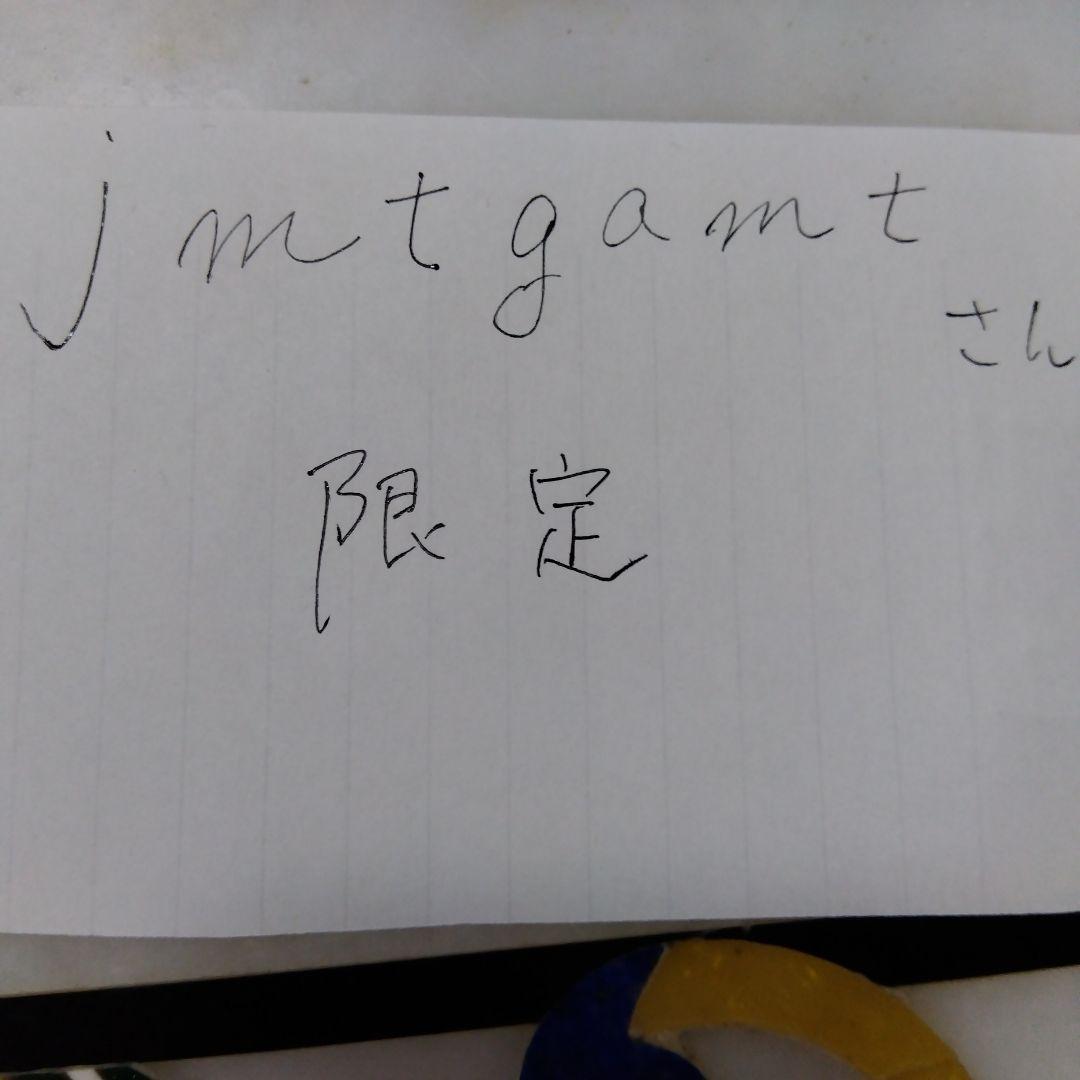 jmtgamt
さん
限定